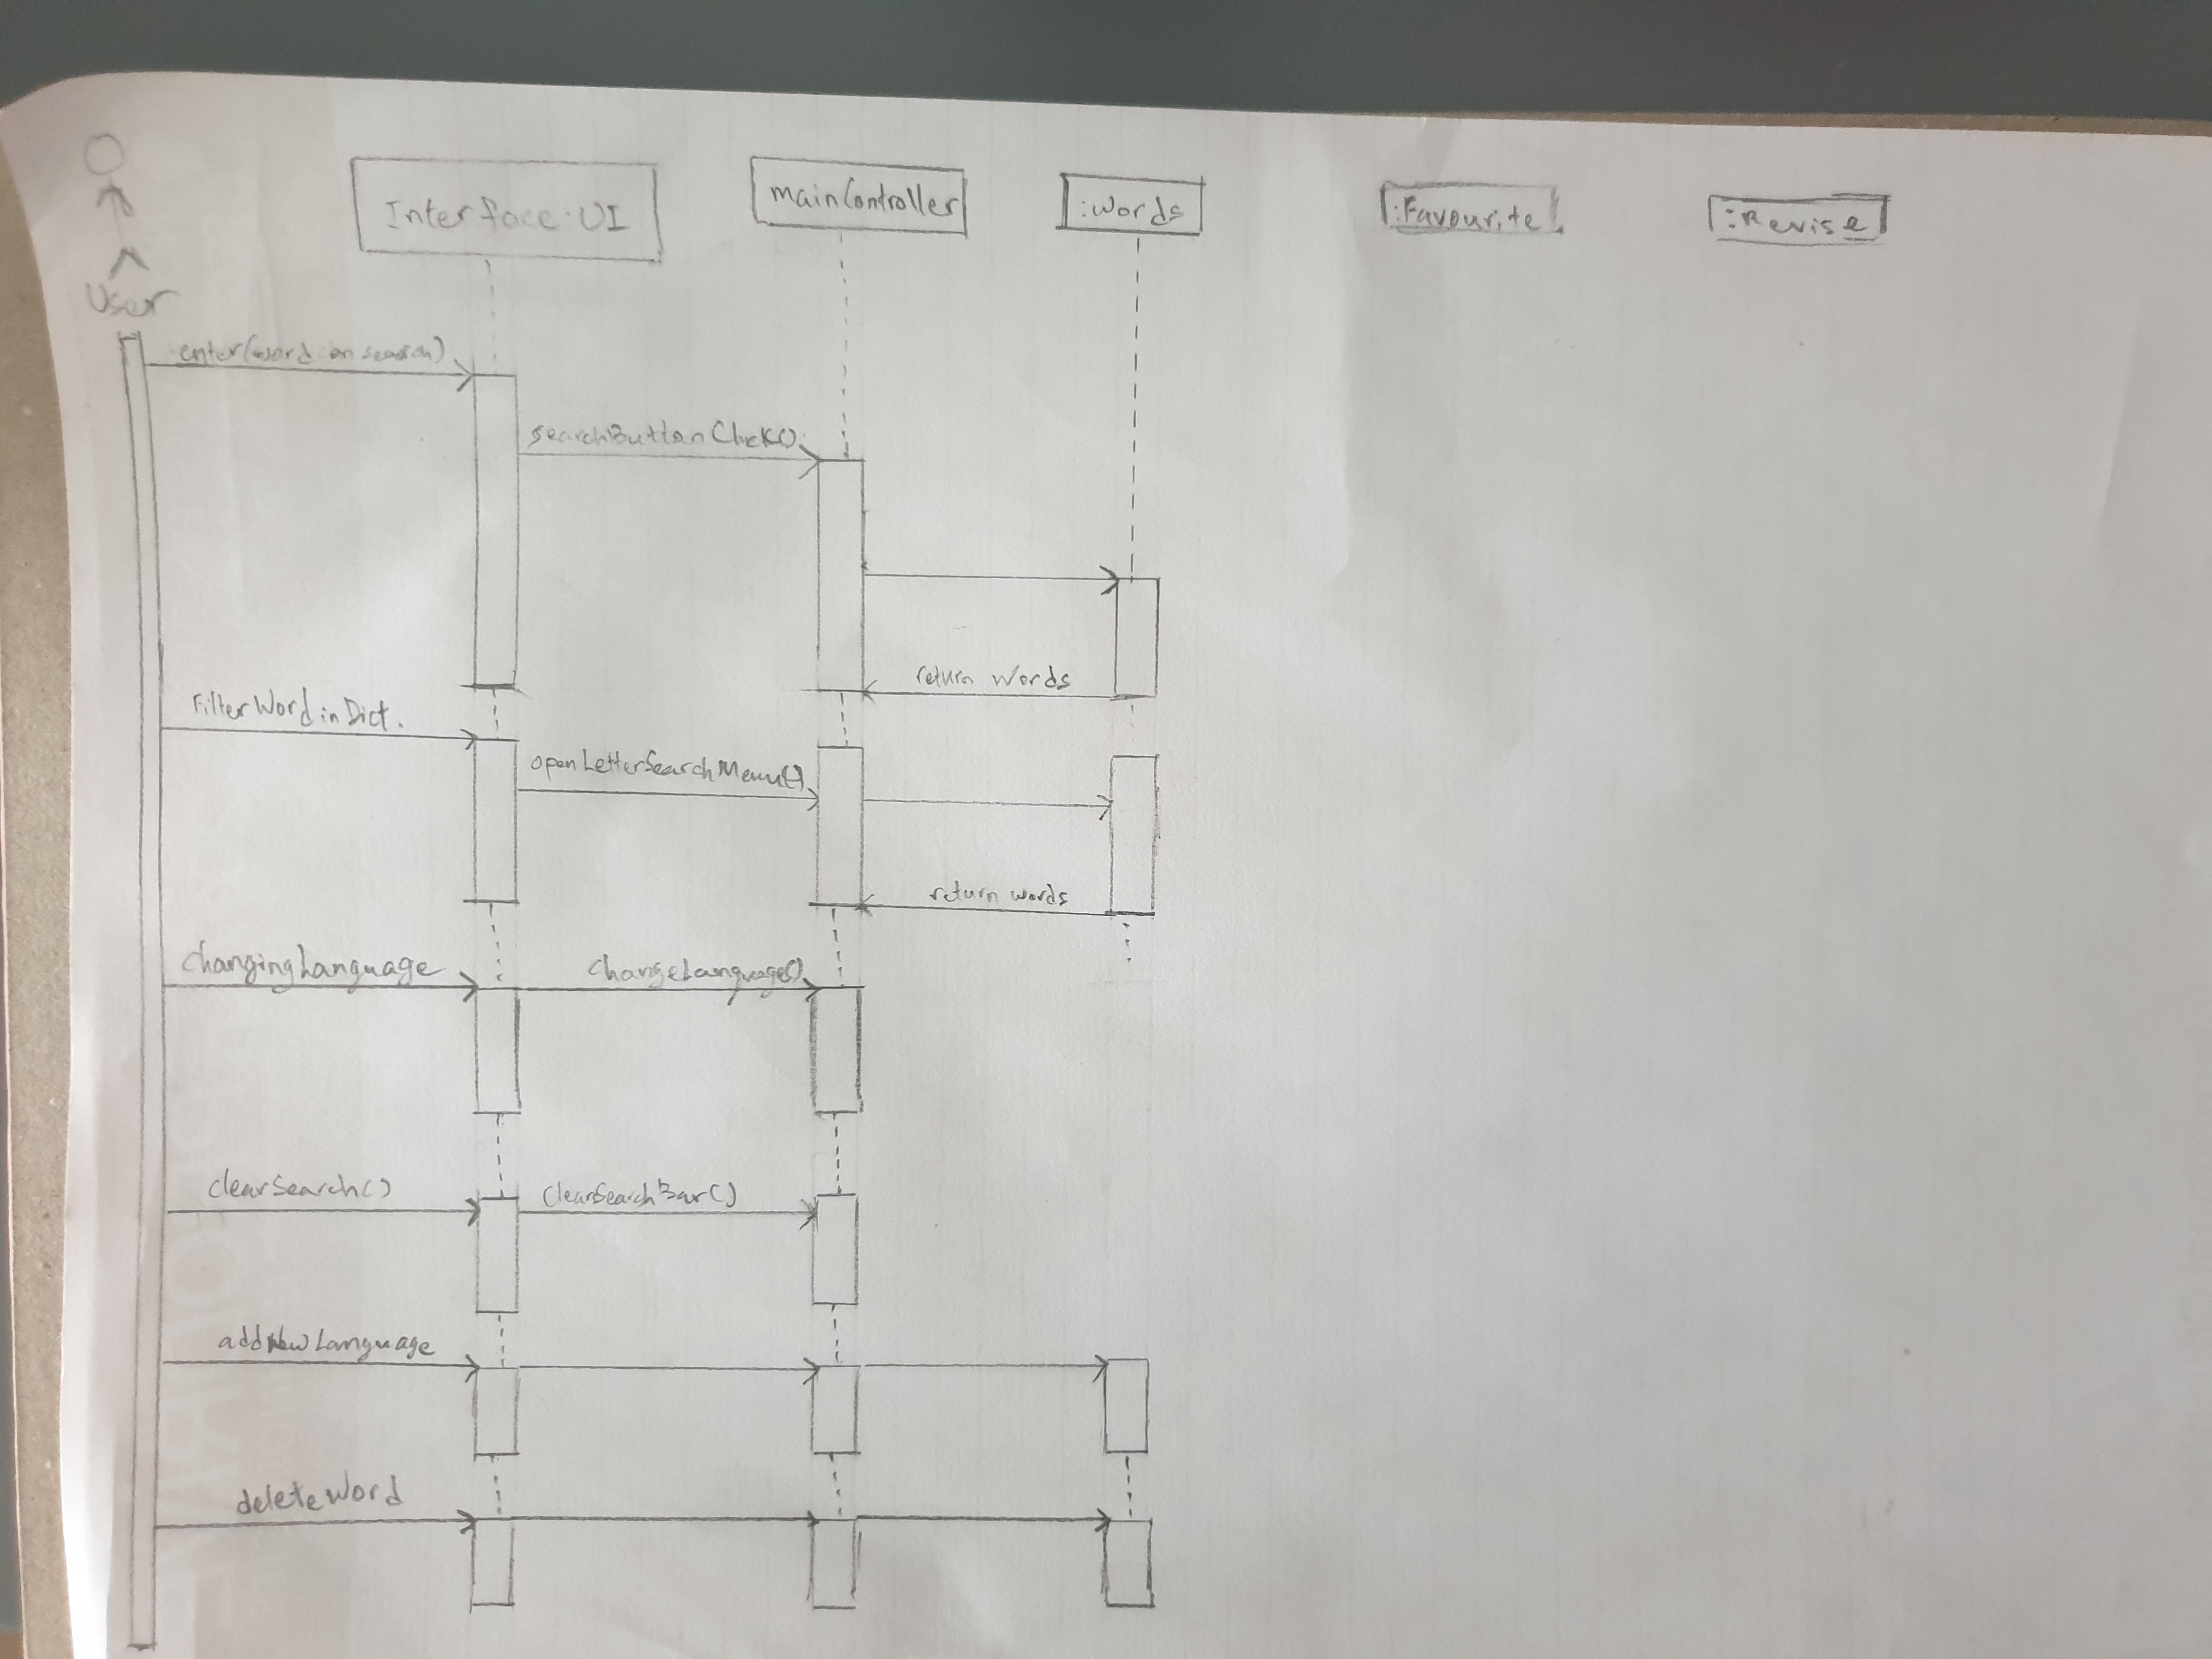 User
Interface:UI
mainController
:Words
:Favourite
:Revise
enter(word on search)
searchButtonCheck()
return words
FilterWordinDict.
openLetterSearchMenu()
return words
ChangingLanguage
changeLanguage()
clearSearch()
clearSearchBar()
addNewLanguage
deleteWord